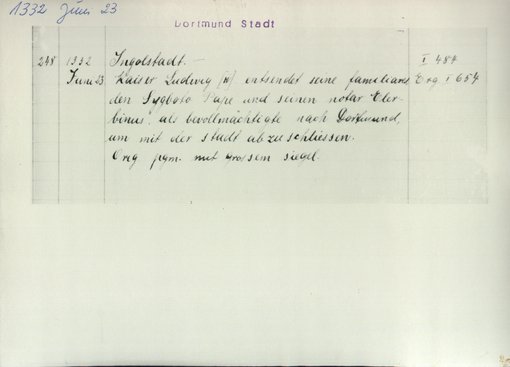 1332 Juni 23
Dortmund Stadt
248 1332 Ingolstadt. — I 484
Juni 23. Kaiser Ludwig [IV] entsendet seine familiares Erg I 654
den Sygboto Pape und seinen notar "Eler-
binus" als bevollmächtigte nach Dortmund,
um mit der stadt abzuschliessen.
Org pgm. mit grossem siegel.